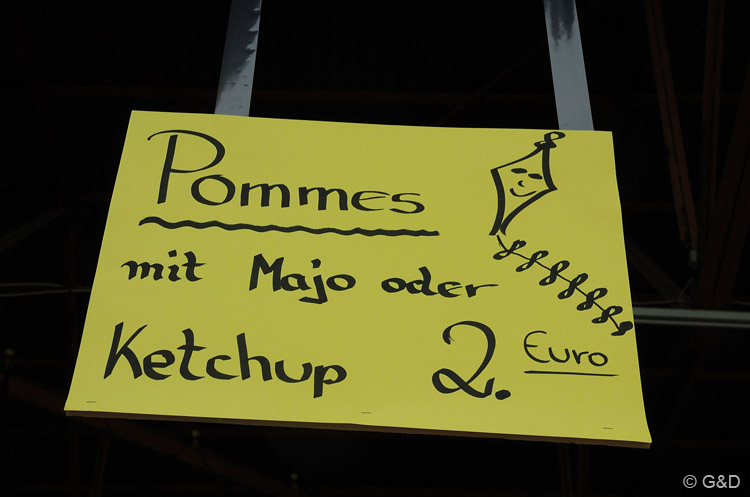 Pommes
mit Majo oder
Ketchup 2. Euro
© G&D